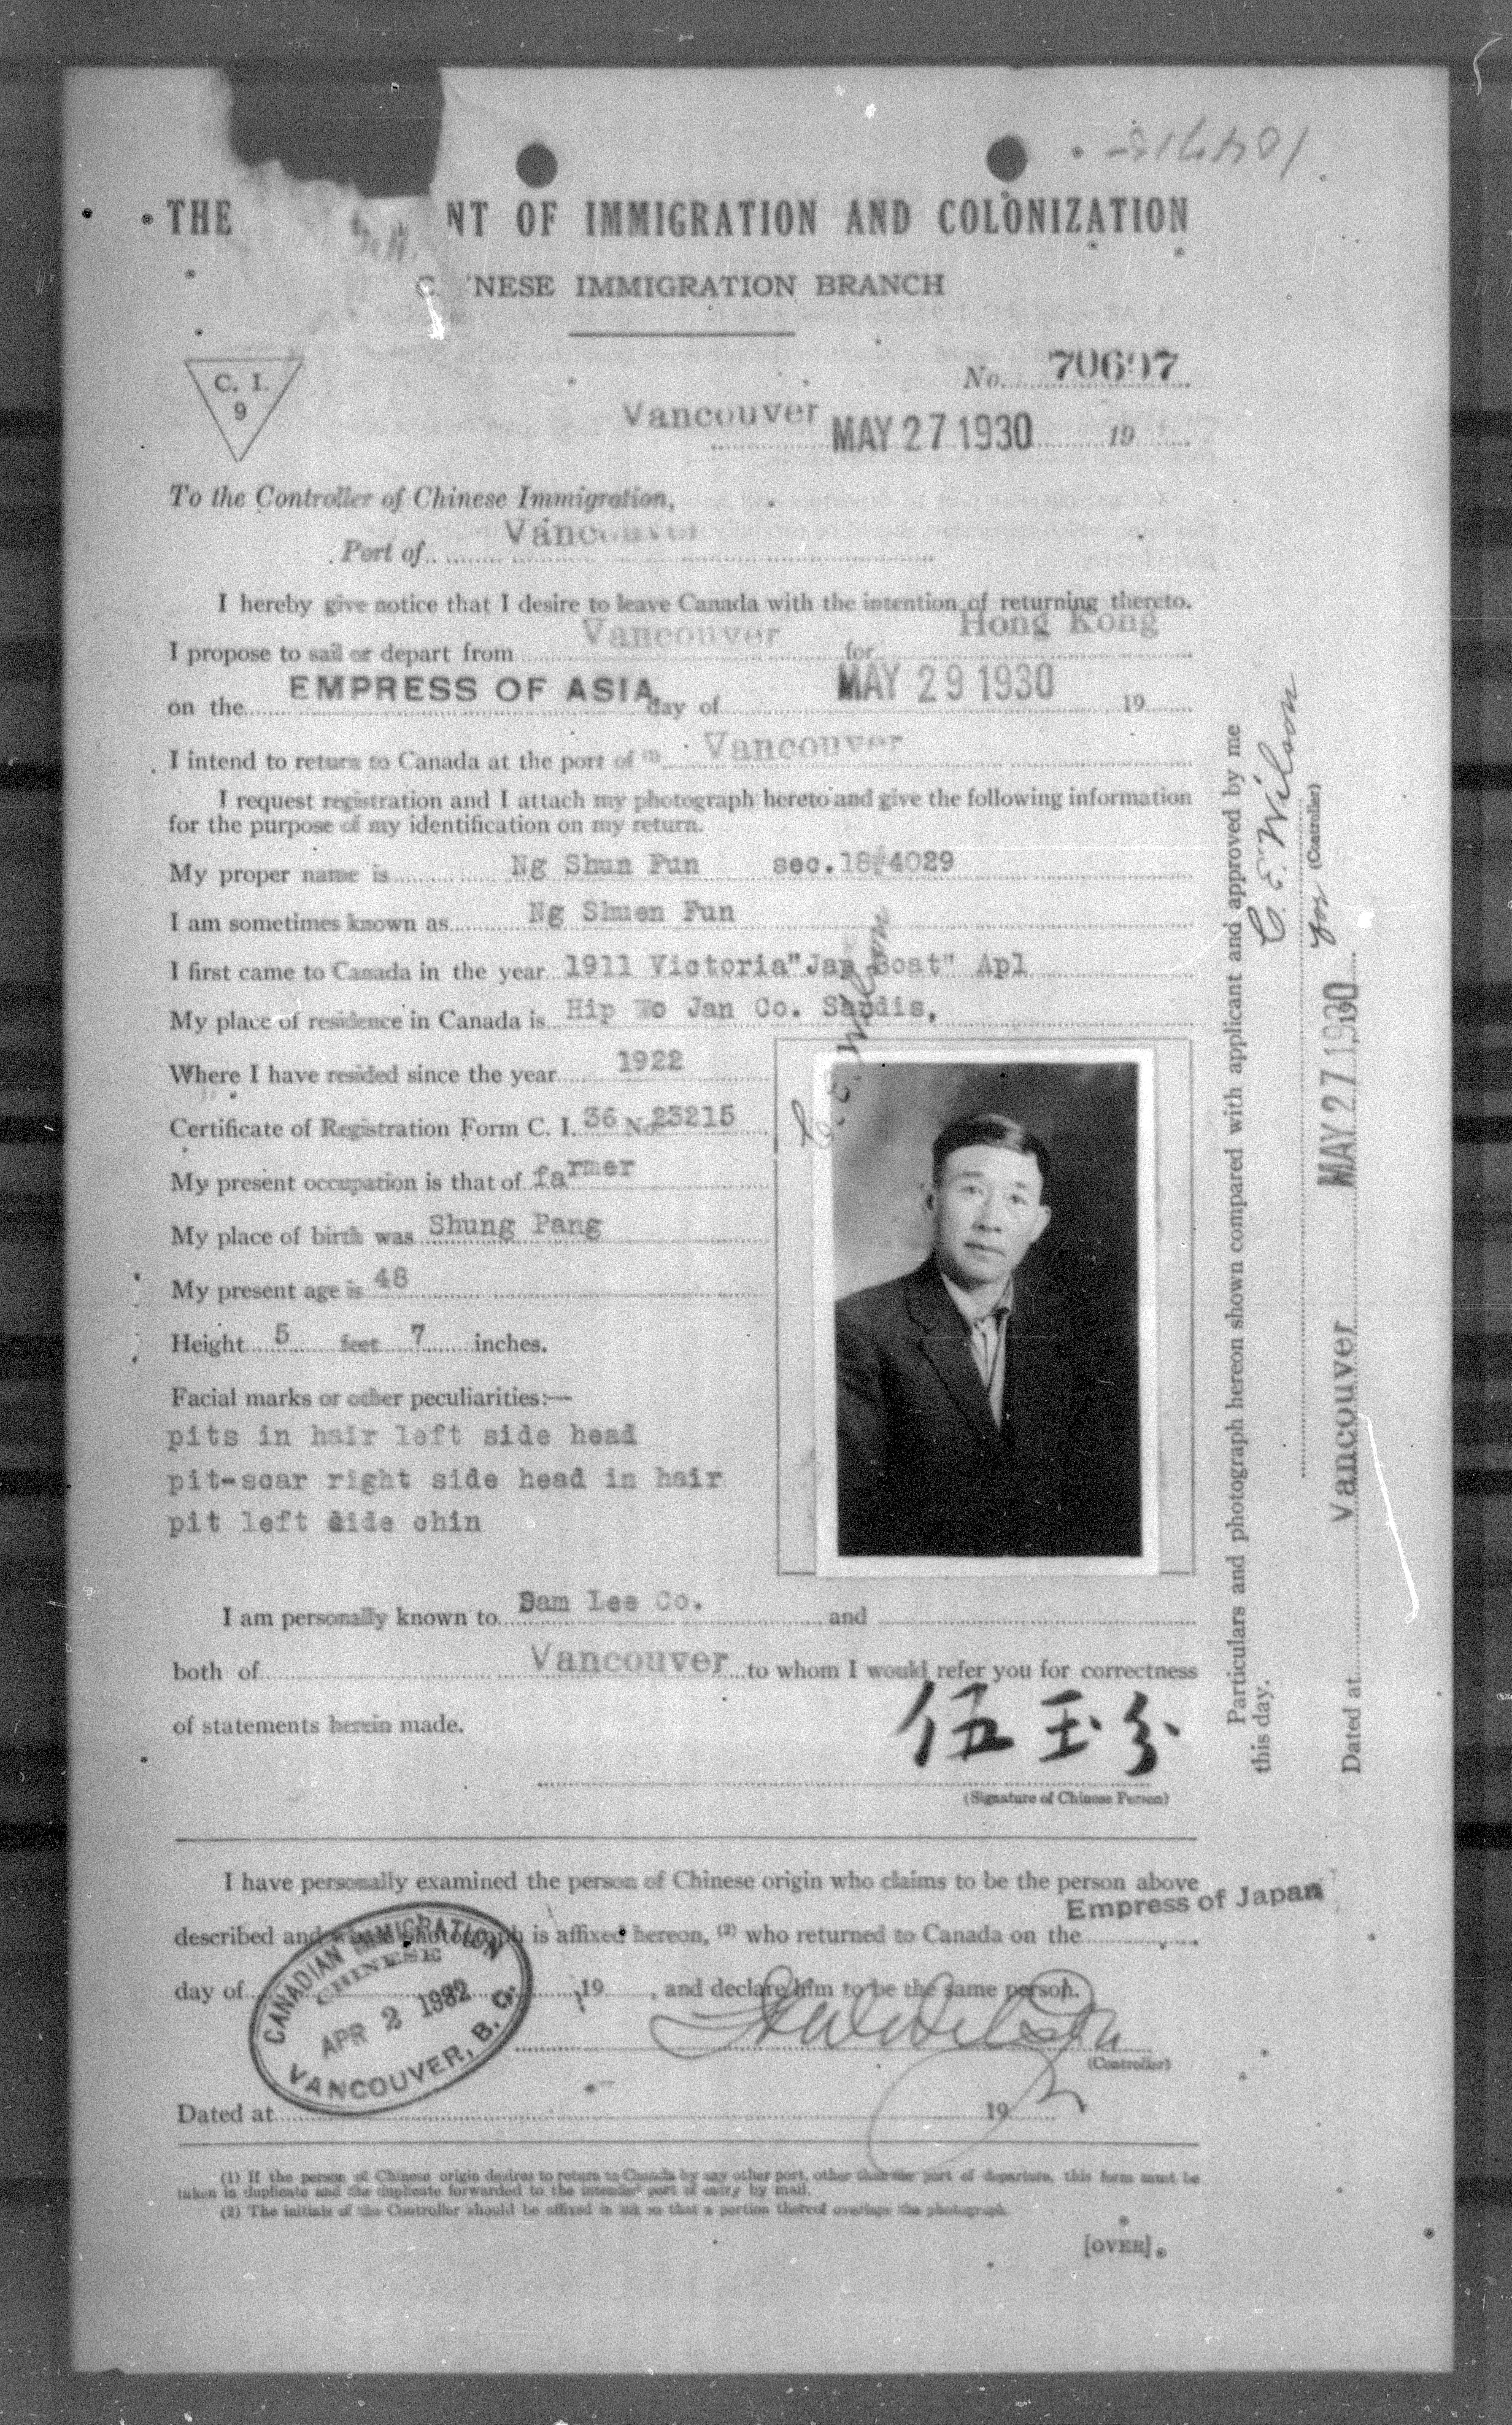 THE NT OF IMMIGRATION AND COLONIZATION
NESE IMMIGRATION BRANCH
C. I.
9
No. 70697
Vancouver MAY 27 1930 19
To the Controller of Chinese Immigration,
Port of Vancouver
I hereby give notice that I desire to leave Canada with the intention of returning thereto.
I propose to sail or depart from Vancouver for Hong Kong
on the EMPRESS OF ASIA day of MAY 29 1930 19
I intend to return to Canada at the port of (1) Vancouver
I request registration and I attach my photograph hereto and give the following information
for the purpose of my identification on my return.
My proper name is Ng Shun Fun sec.18#4029
I am sometimes known as Ng Shuen Fun
I first came to Canada in the year 1911 Victoria"Jap Boat" Apl
My place of residence in Canada is Hip Wo Jan Co. Sardis,
Where I have resided since the year 1922
Certificate of Registration Form C. I. 36 No 23215
My present occupation is that of farmer
My place of birth was Shung Pang
My present age is 48
Height 5 feet 7 inches.
Facial marks or other peculiarities:—
pits in hair left side head
pit-scar right side head in hair
pit left side chin
C. E. Wilson
I am personally known to Sam Lee Co. and
both of Vancouver to whom I would refer you for correctness
of statements herein made.
伍玉分
(Signature of Chinese Person)
Particulars and photograph hereon shown compared with applicant and approved by me
this day.
C. E. Wilson
for (Controller)
Dated at Vancouver MAY 27 1930 19
I have personally examined the person of Chinese origin who claims to be the person above
described and whose photograph is affixed hereon, (2) who returned to Canada on the Empress of Japan
day of 19 , and declare him to be the same person.
CANADIAN IMMIGRATION
CHINESE
APR 2 1932
VANCOUVER, B. C.
(Controller)
Dated at 19
(1) If the person of Chinese origin desires to return to Canada by any other port, other than the port of departure, this form must be
taken in duplicate and the duplicate forwarded to the intended port of entry by mail.
(2) The initials of the Controller should be affixed in ink so that a portion thereof overlaps the photograph.
[OVER]